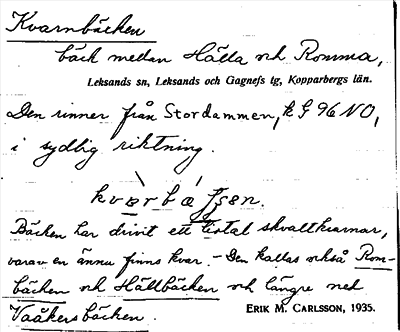 Kvarnbäcken
bäck medan Hälla och Romma,
Leksands sn, Leksands och Gagnefs tg, Kopparbergs län.
Den rinner från Stordammen, k G 96 NO,
i sydlig riktning.
Bäcken har drivit ett tiotal skvaltkvarnar,
varav en ännu finns kvar. - Den kallas också Rom-
bäcken och Hällbäcken och längre ned
Vaåkersbäcken.
ERIK M. CARLSSON, 1935.